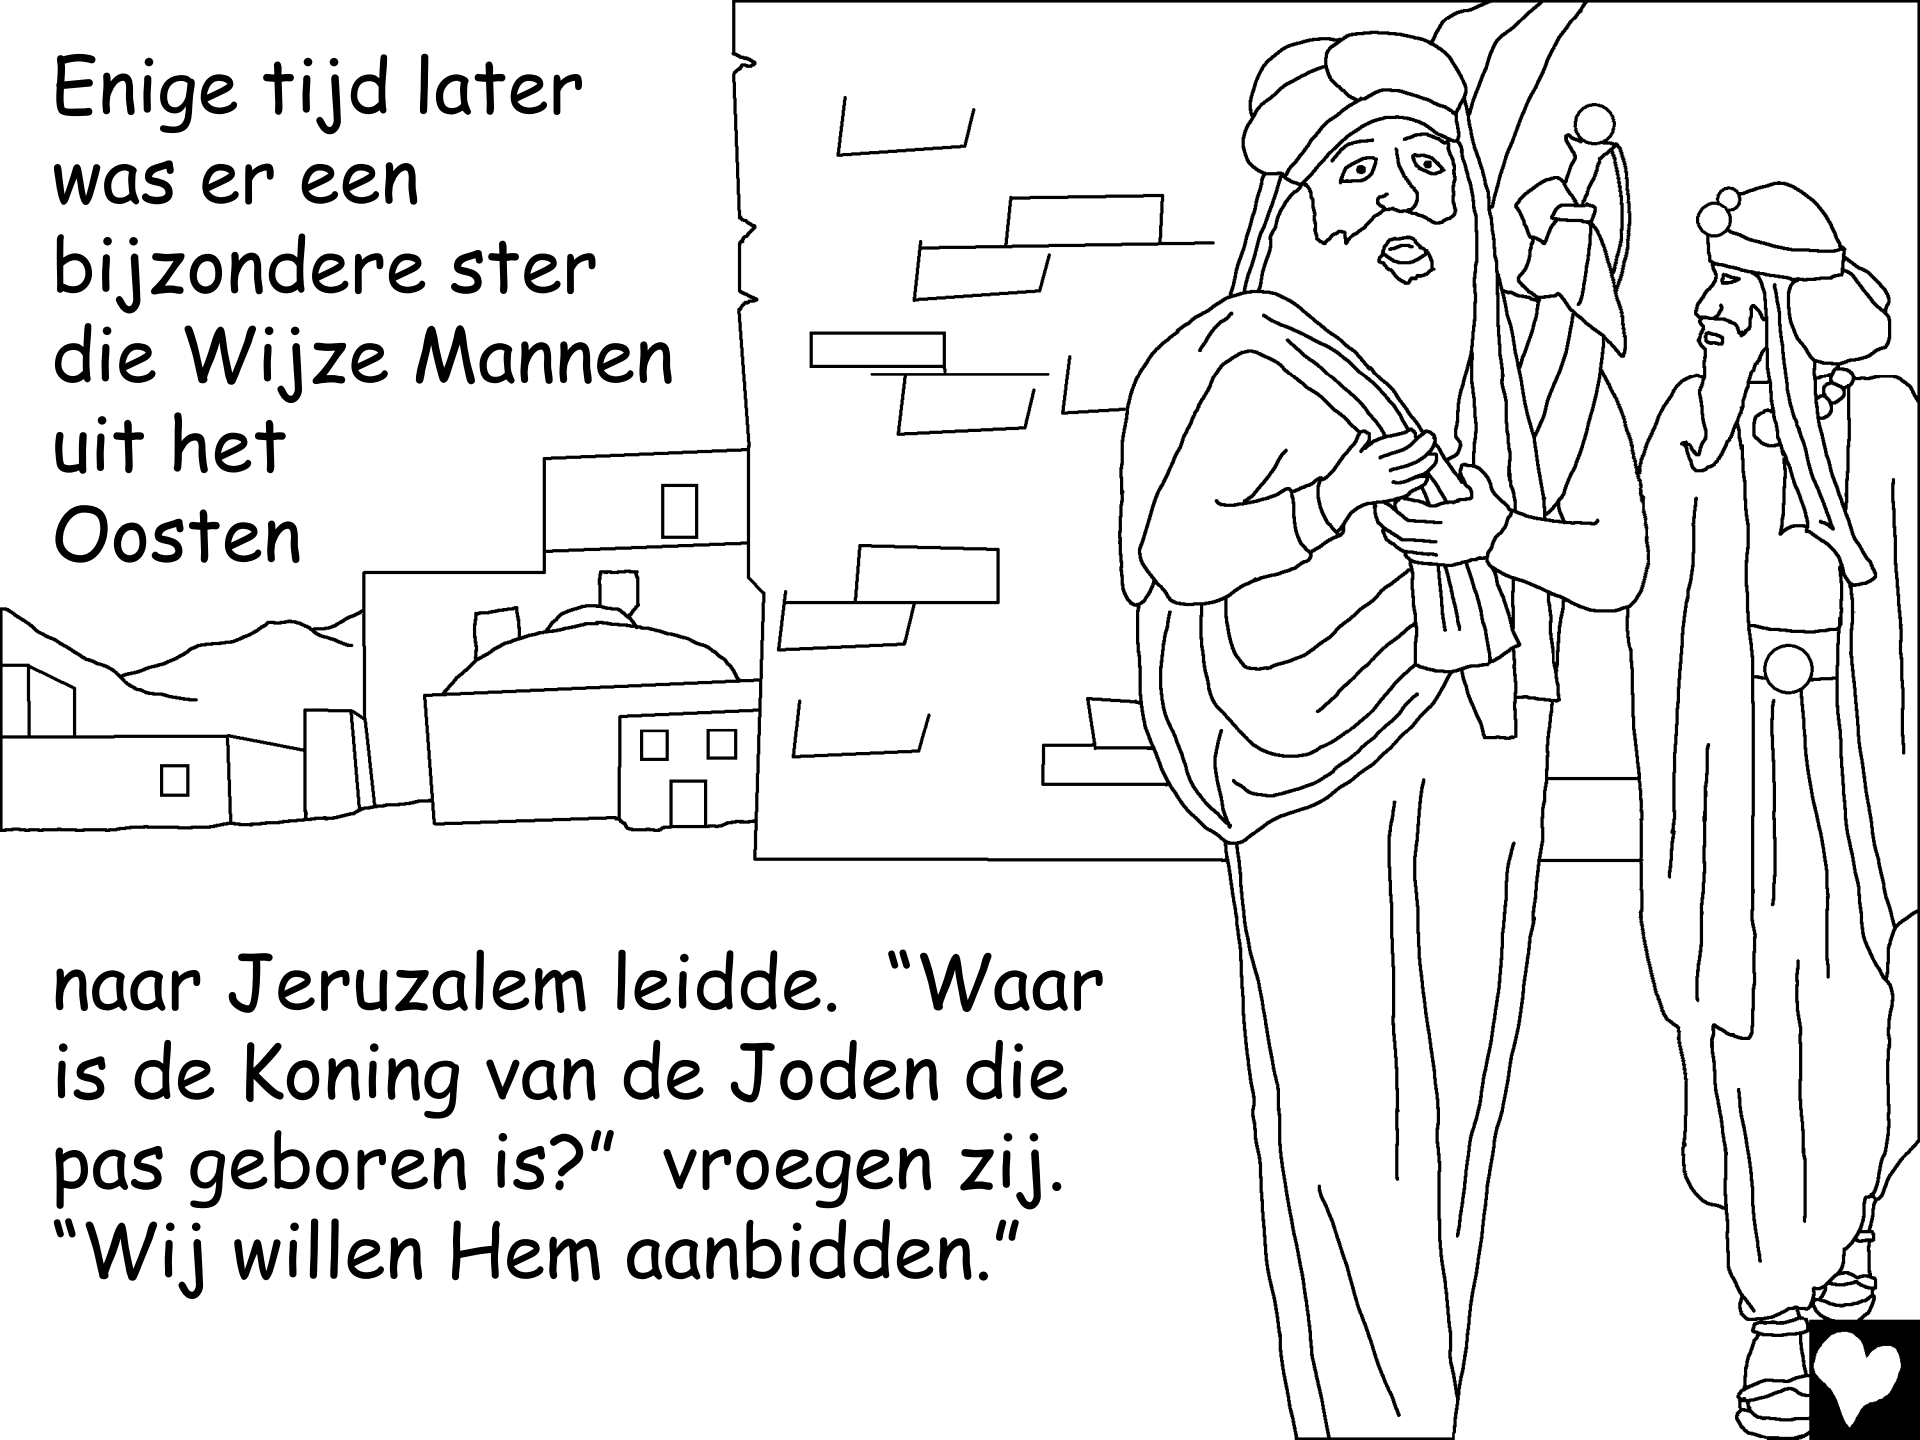 Enige tijd later
was er een
bijzondere ster
die Wijze Mannen
uit het
Oosten
naar Jeruzalem leidde.  “Waar
is de Koning van de Joden die
pas geboren is?”  vroegen zij.
“Wij willen Hem aanbidden.”